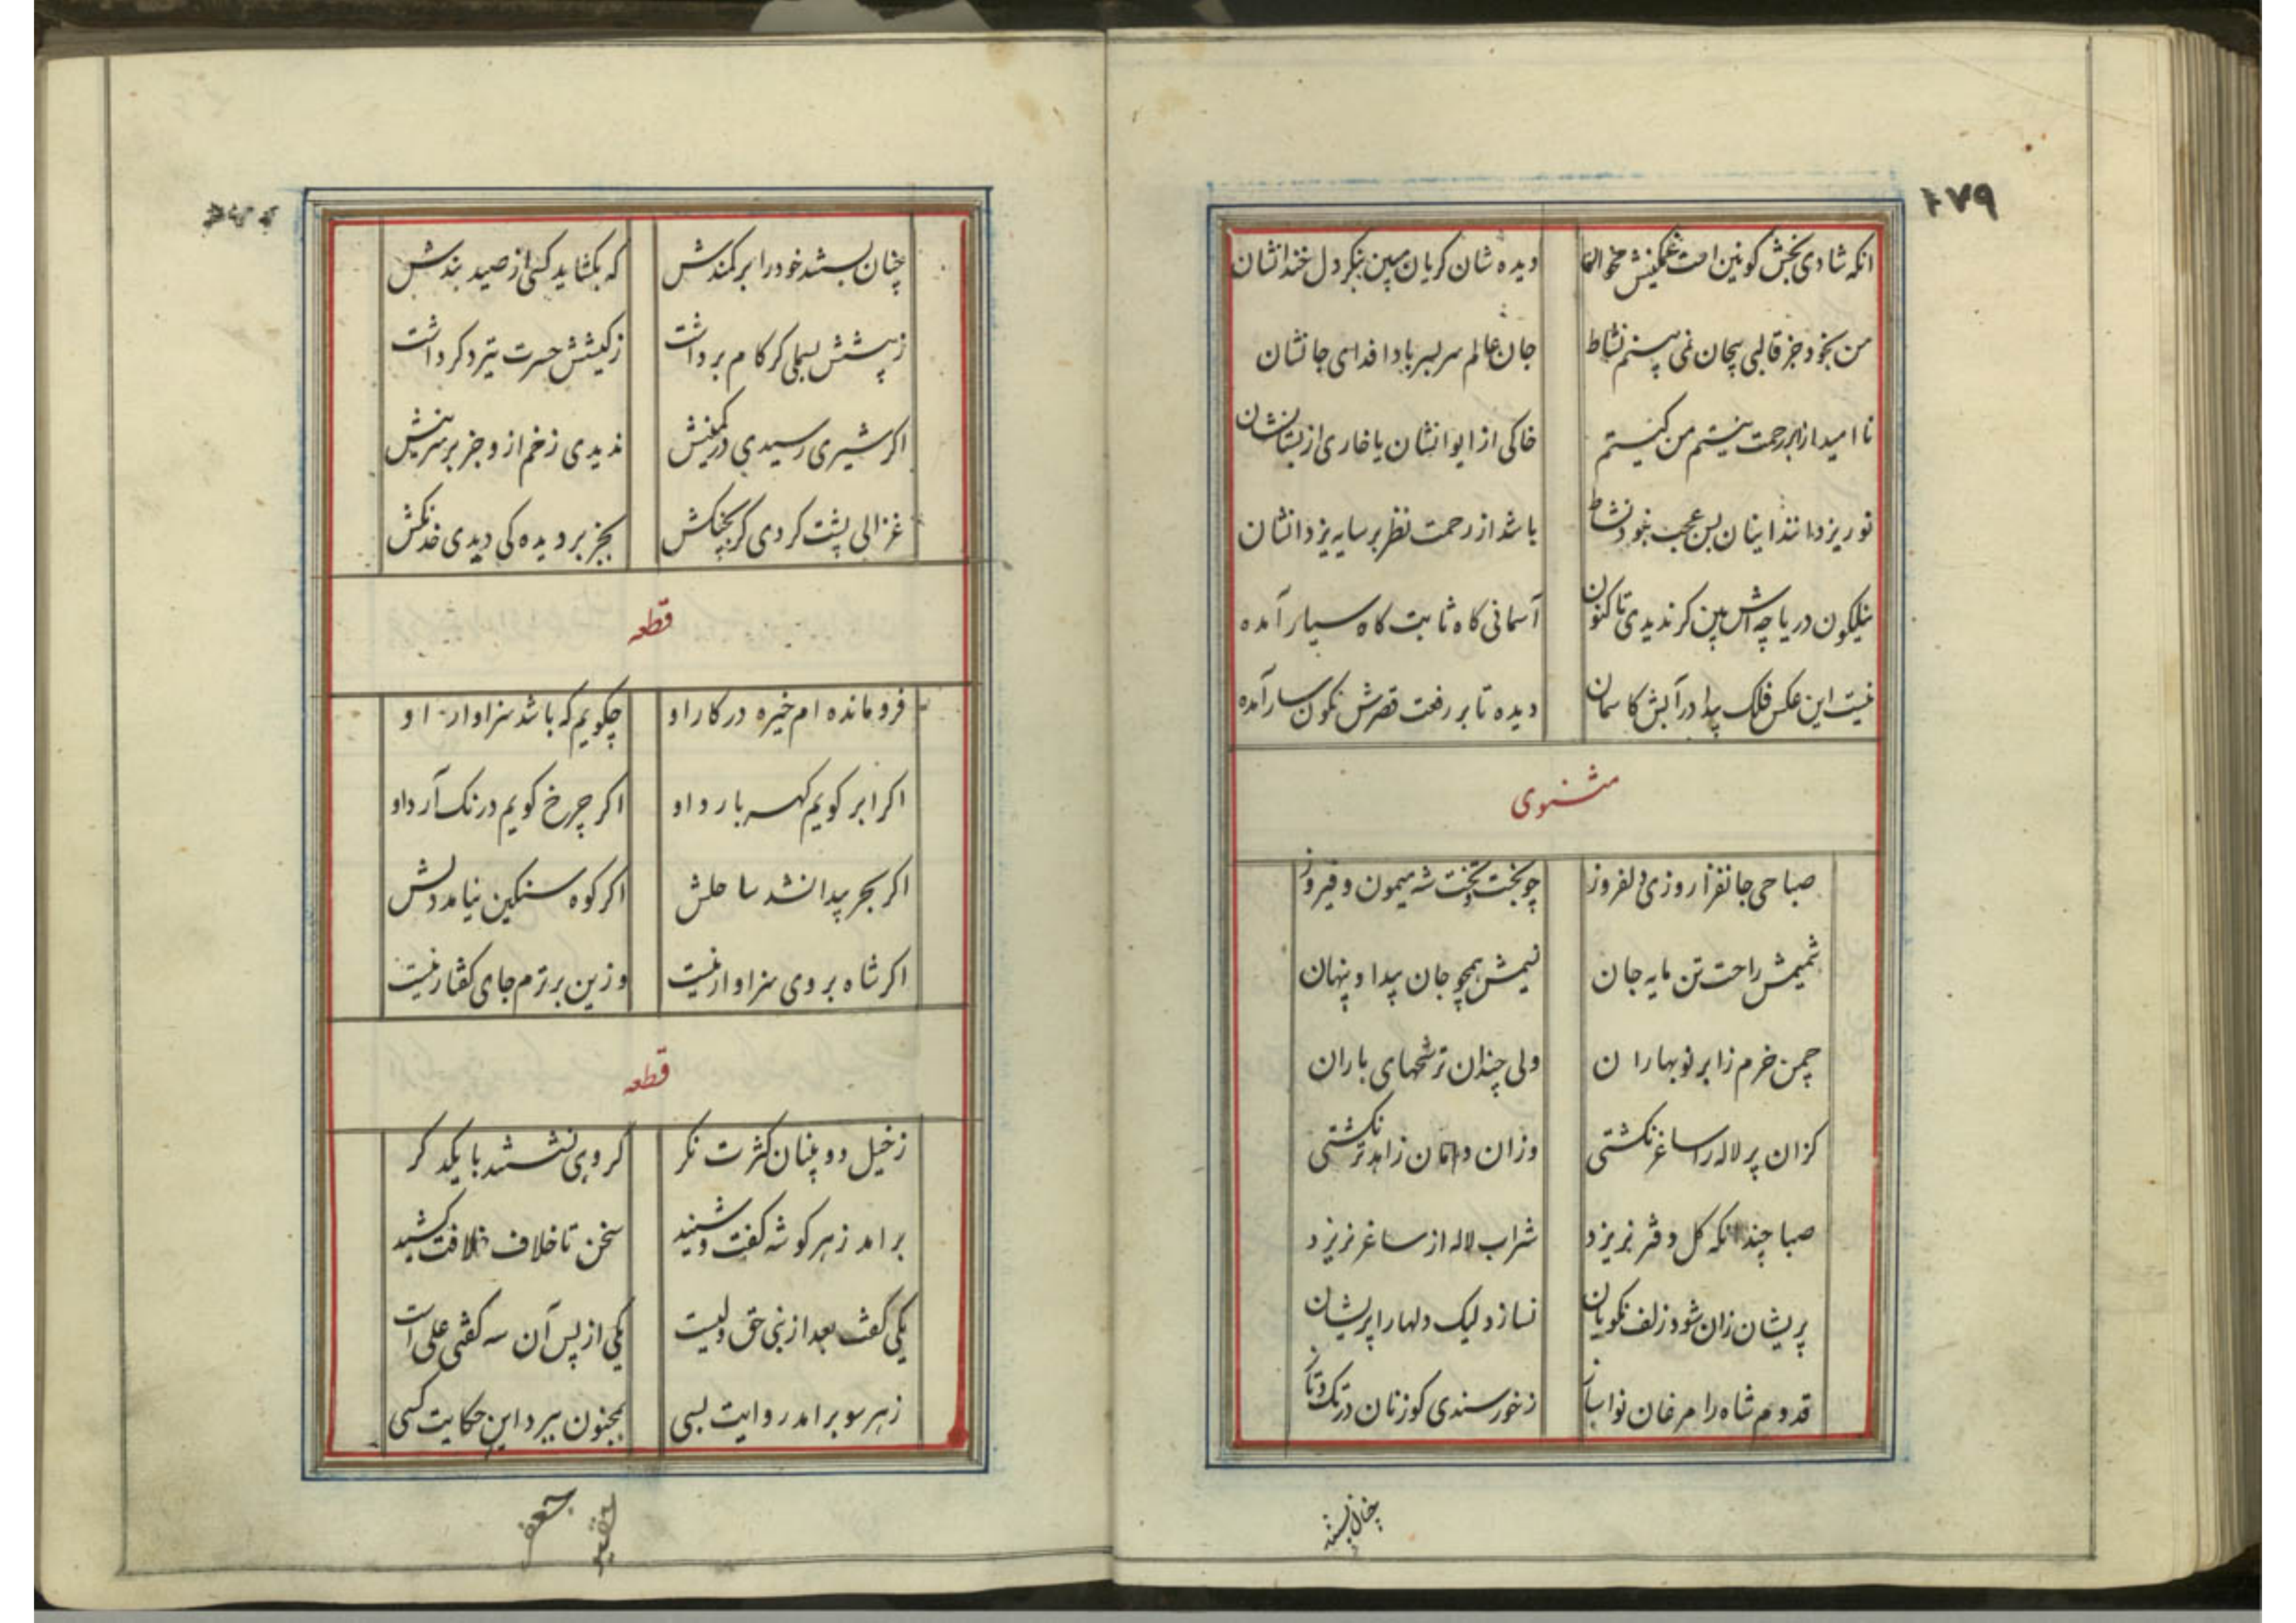 ۲۷۹
انکه شادی بخش کونین است غمکینش مخوان دیده شان کریان مبین بنکر دل خندانشان
من بخود جز قالبی بیجان نمی بینم نشاط جان عالم سربسر بادا فدای جانشان
نا امید از ابر رحمت نیستم من کیستم خاکی از ایوانشان یا خاری از بستانشان
نور یزدانند اینان بس عجب نبود نشاط باشد از رحمت نظر بر سایه یزدانشان
نیلکون دریاچه اش بین کر ندیدی تا کنون آسمانی کاه ثابت کاه سیار آمده
نیست این عکس فلک پیدا در آبش کاسمان دیده تا بر رفعت قصرش نکون سار آمده
مثنوی
صباحی جانفزا روزی دلفروز چو بخت و تخت شه میمون و فیروز
شمیمش راحت تن مایه جان نسیمش همچو جان پیدا و پنهان
چمن خرم ز ابر نوبهاران ولی چندان ترشحهای باران
کزان پر لاله را ساغر نکشتی وزان دامان زاهد تر نکشتی
صبا چندانکه کل دفتر نریزد شراب لاله از ساغر نریزد
پریشان زان شود زلف نکویان نسازد لیک دلها را پریشان
قدوم شاه را مرغان نواساز زخورسندی کوزنان در تک و تاز
چنان بستند
چنان بستند خود را بر کمندش که بکشاید کسی از صید بندش
ز پیشش بسملی کر کام برداشت ز کیشش حسرت تیر دکر داشت
اکر شیری رسیدی در کمینش ندیدی زخم از و جز بر سرینش
غزالی پشت کردی کر بجنکش بجز بر دیده کی دیدی خدنکش
قطعه
فرو مانده ام خیره در کار او چکویم که باشد سزاوار او
اکر ابر کویم کهر بارد او اکر چرخ کویم درنک آرد او
اکر بحر پیدا نشد ساحلش اکر کوه سنکین نیامد دلش
اکر شاه بر وی سزاوار نیست وزین برترم جای کفتار نیست
قطعه
ز خیل دو بینان کثرت نکر کروهی نشستند با یکدکر
برامد ز هر کوشه کفت و شنید سخن تا خلاف خلافت کشید
یکی کفت بعد از نبی حق ولیست یکی از پس آن سه کفتی علی است
ز هر سو برامد روایت بسی بمجنون ببرد این حکایت کسی